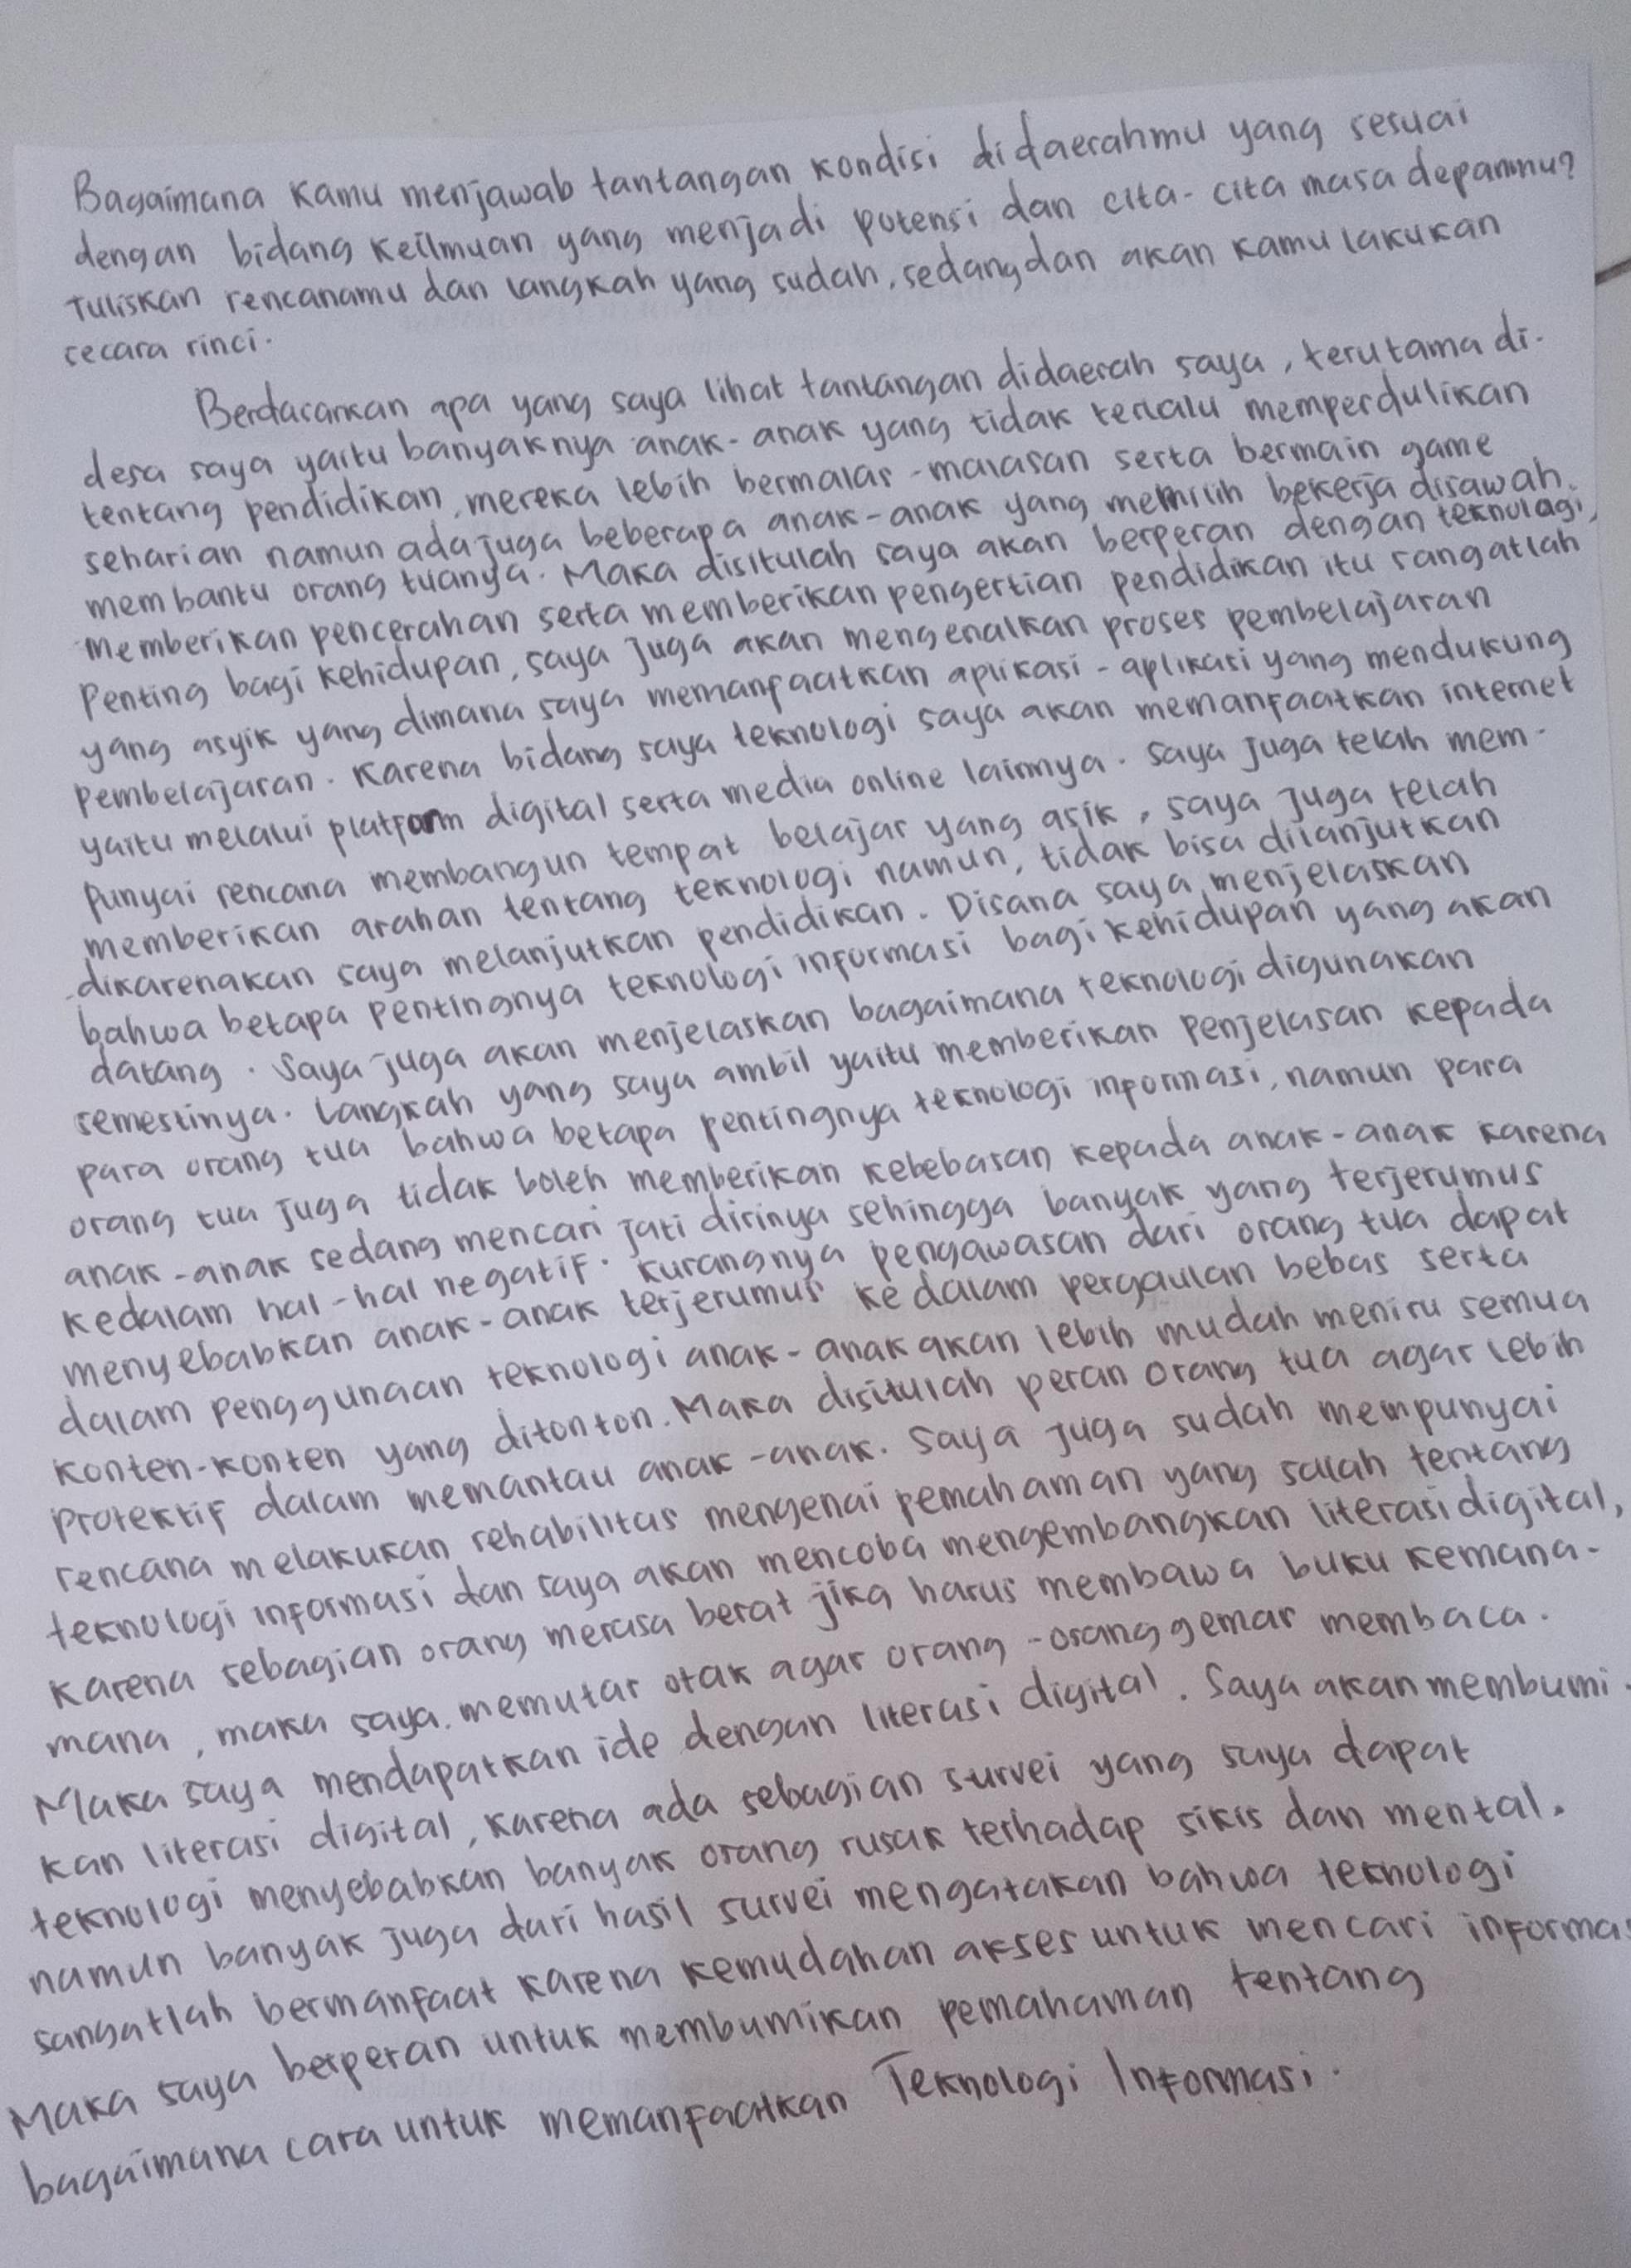 Bagaimana kamu menjawab tantangan kondisi didaerahmu yang sesuai
dengan bidang keilmuan yang menjadi potensi dan cita-cita masa depanmu?
Tuliskan rencanamu dan langkah yang sudah, sedang dan akan kamu lakukan
secara rinci.
Berdasarkan apa yang saya lihat tantangan didaerah saya, terutama di-
desa saya yaitu banyaknya anak-anak yang tidak terlalu memperdulikan
tentang pendidikan, mereka lebih bermalas-malasan serta bermain game
seharian namun ada juga beberapa anak-anak yang memilih bekerja disawah
membantu orang tuanya. Maka disitulah saya akan berperan dengan teknologi,
memberikan pencerahan serta memberikan pengertian pendidikan itu sangatlah
penting bagi kehidupan, saya juga akan mengenalkan proses pembelajaran
yang asyik yang dimana saya memanfaatkan aplikasi-aplikasi yang mendukung
pembelajaran. Karena bidang saya teknologi saya akan memanfaatkan internet
yaitu melalui platform digital serta media online lainnya. Saya juga telah mem-
punyai rencana membangun tempat belajar yang asik, saya juga telah
memberikan arahan tentang teknologi namun, tidak bisa dilanjutkan
dikarenakan saya melanjutkan pendidikan. Disana saya menjelaskan
bahwa betapa pentingnya teknologi informasi bagi kehidupan yang akan
datang. Saya juga akan menjelaskan bagaimana teknologi digunakan
semestinya. Langkah yang saya ambil yaitu memberikan penjelasan kepada
para orang tua bahwa betapa pentingnya teknologi informasi, namun para
orang tua juga tidak boleh memberikan kebebasan kepada anak-anak karena
anak-anak sedang mencari jati dirinya sehingga banyak yang terjerumus
kedalam hal-hal negatif. Kurangnya pengawasan dari orang tua dapat
menyebabkan anak-anak terjerumus kedalam pergaulan bebas serta
dalam penggunaan teknologi anak-anak akan lebih mudah meniru semua
konten-konten yang ditonton. Maka disitulah peran orang tua agar lebih
protektif dalam memantau anak-anak. Saya juga sudah mempunyai
rencana melakukan rehabilitas mengenai pemahaman yang salah tentang
teknologi informasi dan saya akan mencoba mengembangkan literasi digital,
karena sebagian orang merasa berat jika harus membawa buku kemana-
mana, maka saya memutar otak agar orang-orang gemar membaca.
Maka saya mendapatkan ide dengan literasi digital. Saya akan membumi-
kan literasi digital, karena ada sebagian survei yang saya dapat
teknologi menyebabkan banyak orang rusak terhadap sikis dan mental.
namun banyak juga dari hasil survei mengatakan bahwa teknologi
sangatlah bermanfaat karena kemudahan akses untuk mencari informas
Maka saya berperan untuk membumikan pemahaman tentang
bagaimana cara untuk memanfaatkan Teknologi Informasi.